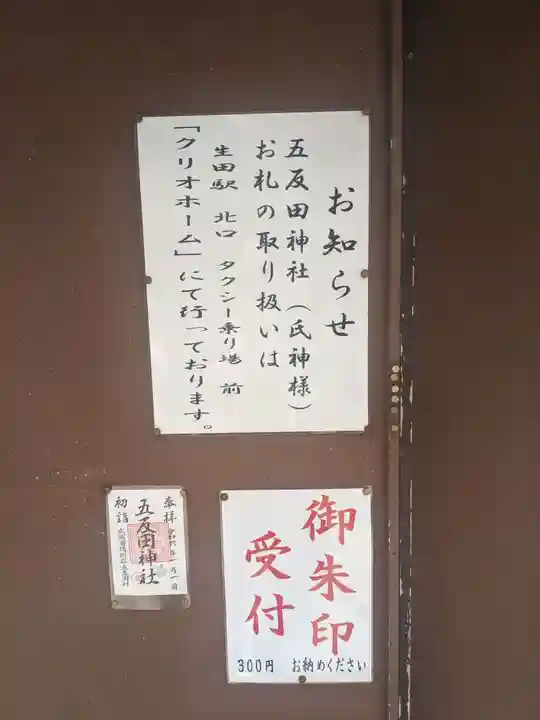 お知らせ
五反田神社(氏神様)
お札の取り扱いは
生田駅 北口 タクシー乗り場 前
「クリオホーム」にて行っております。
奉拝
五反田神社
初詣
御朱印
受付
300円 お納めください